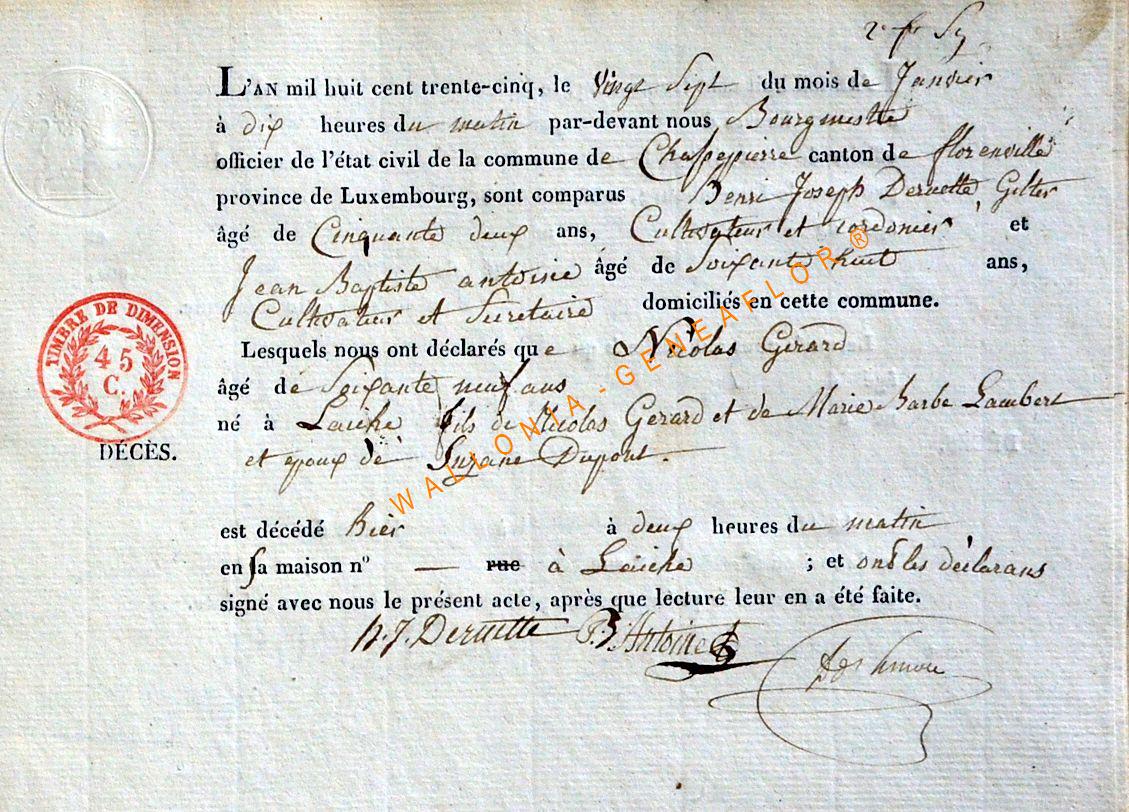 2e
L'AN mil huit cent trente-cinq, le Vingt Sept du mois de Janvier
à dix heures du matin par-devant nous Bourgmestre
officier de l'état civil de la commune de Chassepierre canton de florenville
province de Luxembourg, sont comparus Henri Joseph Deruette
âgé de Cinquante deux ans, Cultivateur et cordonier et
Jean Baptiste antoine âgé de Soixante huit ans,
Cultivateur et Secretaire domiciliés en cette commune.
Lesquels nous ont déclarés que Nicolas Gerard
âgé de Soixante neuf ans
né à Laiche fils de Nicolas Gerard et de Marie Barbe Lambert
DÉCÈS.
et epoux de Suzane Dupont.
est décédé hier à deux heures du matin
en sa maison n° — rue à Laiche ; et ont les déclarans
signé avec nous le présent acte, après que lecture leur en a été faite.
h. J. Deruette J. B. Antoine
TIMBRE DE DIMENSION
45
C.
WALLONIA - GENEAFLOR ®